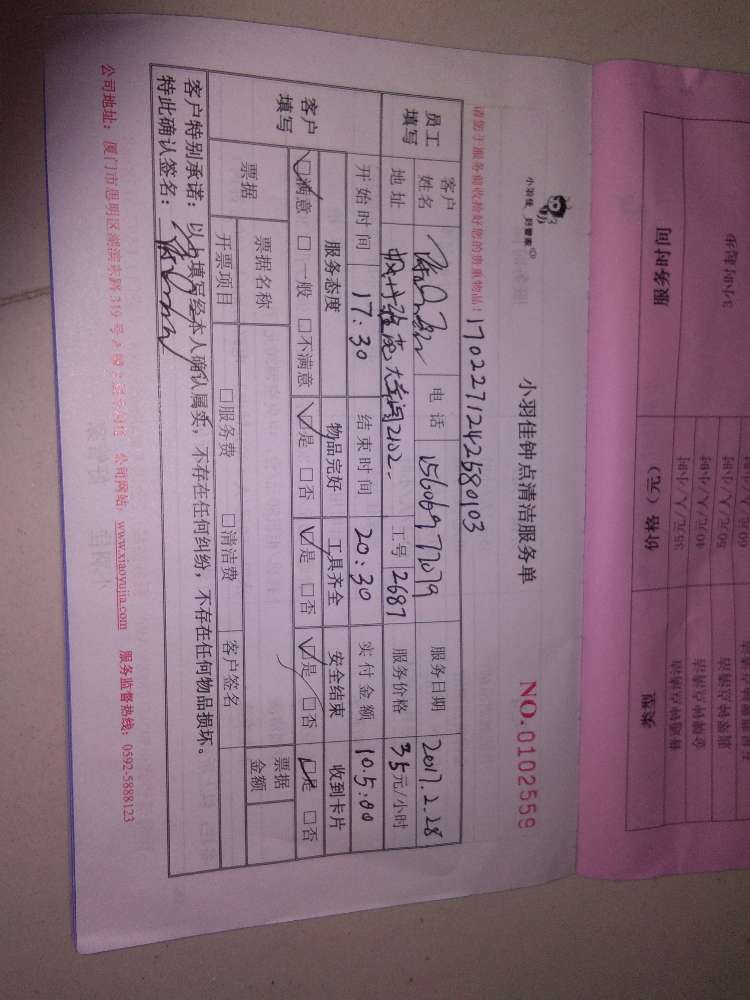 小羽佳 好管家
小羽佳钟点清洁服务单
NO.0102559
请您于服务前收拾好您的贵重物品！
170227124258 0103
员工填写
客户姓名 电话 15606977079 服务日期 2017.2.28
地址 大车间2102. 工号 2687 服务价格 35元/小时
客户填写
开始时间 17:30 结束时间 20:30 实付金额 105:00
服务态度 物品完好 工具齐全 安全结束 收到卡片
☑满意 □一般 □不满意 ☑是 □否 ☑是 □否 ☑是 □否 ☑是 □否
票据 票据名称 票据金额
开票项目 □服务费 □清洁费 客户签名
客户特别承诺：以上填写经本人确认属实，不存在任何纠纷，不存在任何物品损坏。
特此确认签名：
公司地址：厦门市思明区湖滨东路319号 公司网站：www.xiaoyujia.com 服务监督热线：0592-5888123
服务时间 价格（元） 类型
3小时起步
35元/人/小时
40元/人/小时
50元/人/小时